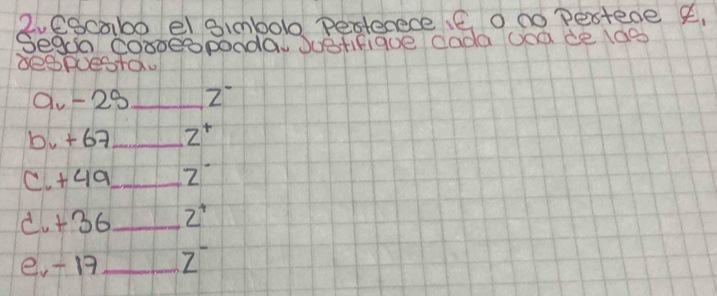 2. Escribo el Símbolo Pertenece ∈ o no Pertene ∉,
Según corresponda. Justifique cada una de las
respuesta.
a. -28 ____ Z⁻
b. +67 ____ Z⁺
c. +49 ____ Z⁻
d. +36 ____ Z⁺
e. -17 ____ Z⁻